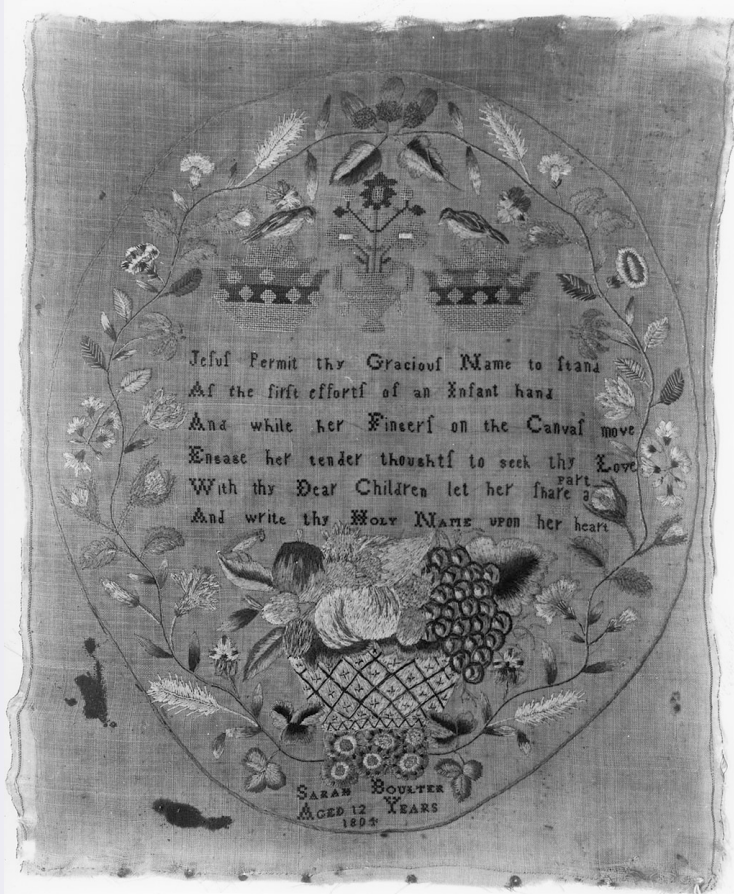 Jeſuſ Permit thy Graciouſ Name to ſtand
Aſ the firſt effortſ of an Infant hand
And while her Fingerſ on the Canvaſ move
Engage her tender thoughtſ to seek thy Love
With thy Dear Children let her ſhare a part
And write thy Holy Name upon her heart
Sarah Boulter
Aged 12 Years
1804